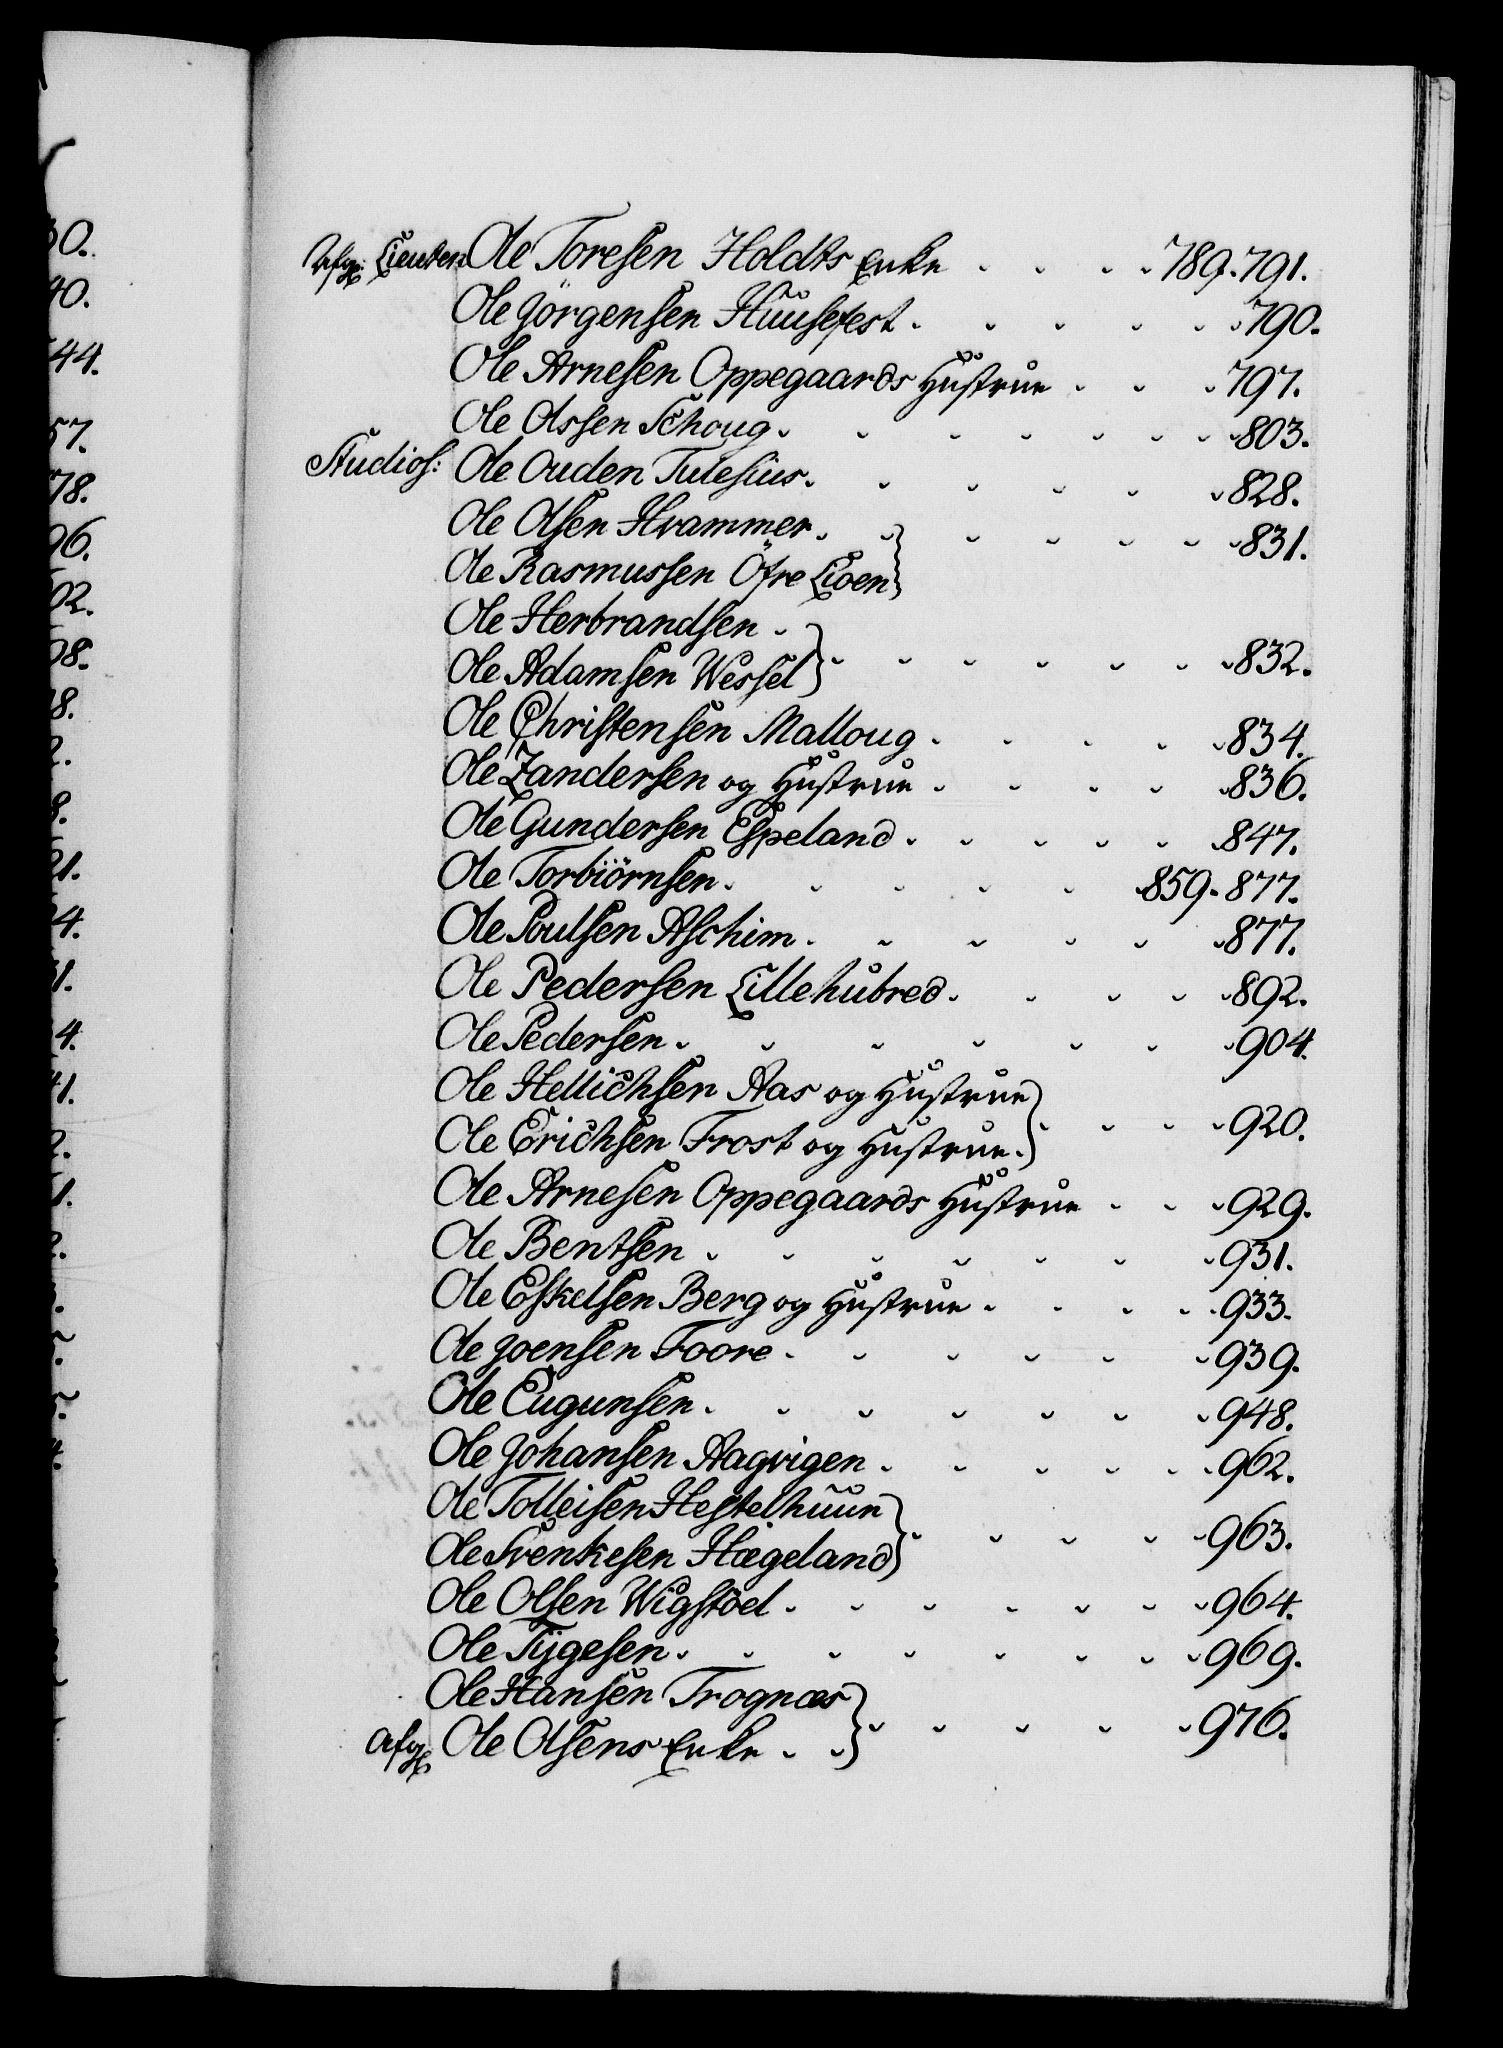 Afg: Lieuten Ole Toresen Holdts Enke . . . . 789. 791.
Ole Jörgensen Huusefest . . . . . 790.
Ole Arnesen Oppegaards Hustrue . . . 797.
Ole Assen Schoug . . . . . . . 803.
Studios: Ole Ouden Tulesius . . . . . 828.
Ole Olsen Hvammer . . . . . . 831.
Ole Rasmussen Öfre Lioen
Ole Herbrandsen .
Ole Adamsen Wessel . . . . . . . 832.
Ole Christensen Malloug . . . . . 834.
Ole Zandersen og Hustrue . . . . . 836.
Ole Gundersen Espeland . . . . . 847.
Ole Torbiörnsen . . . . . 859. 877.
Ole Poulsen Aschim . . . . . 877.
Ole Pedersen Lillehubred . . . . . 892.
Ole Pedersen . . . . . . 904.
Ole Hellichsen Aas og Hustrue
Ole Erichsen Frost og Hustrue . . . . . 920.
Ole Arnesen Oppegaards Hustrue . . . 929.
Ole Bentsen . . . . . . . 931.
Ole Eskelsen Berg og Hustrue . . . . . 933.
Ole Joensen Foore . . . . . . 939.
Ole Eugunsen . . . . . . . 948.
Ole Johansen Aagvigen . . . . . . 962.
Ole Tolleisen Hestelhuun
Ole Svenkesen Hægeland . . . . . 963.
Ole Olsen Wigstöel . . . . . . . 964.
Ole Tygesen . . . . . . . . 969.
Ole Hansen Trognæs
Afg Ole Olsens Enke . . . . . . . 976.